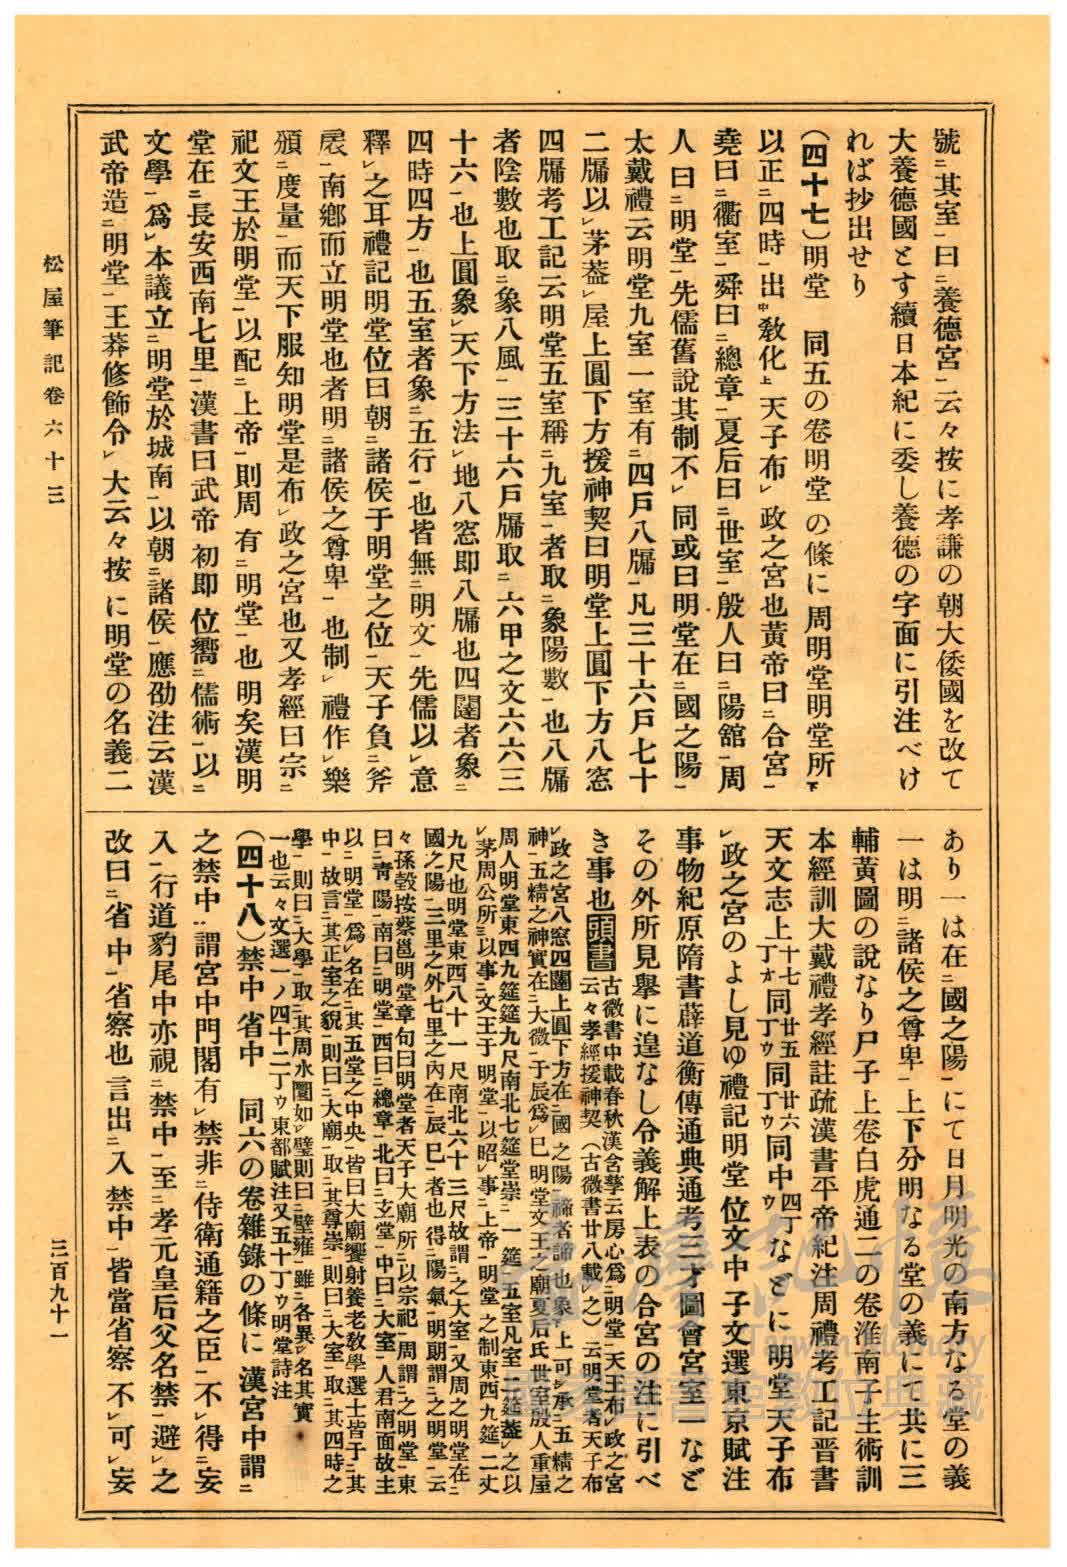 號ニ其室一曰ニ養德宮一云々按に孝謙の朝大倭國を改て
大養德國とす續日本紀に委し養德の字面に引注べけ
れば抄出せり
(四十七)明堂　同五の卷明堂の條に周明堂明堂所下
以正ニ四時一出中敎化上天子布レ政之宮也黃帝曰ニ合宮一
堯曰ニ衢室一舜曰ニ總章一夏后曰ニ世室一殷人曰ニ陽舘一周
人曰ニ明堂一先儒舊說其制不レ同或曰明堂在ニ國之陽一
太戴禮云明堂九室一室有ニ四戶八牖一凡三十六戶七十
二牖以レ茅葢レ屋上圓下方援神契曰明堂上圓下方八窓
四牖考工記云明堂五室稱ニ九室一者取ニ象陽數一也八牖
者陰數也取ニ象八風一三十六戶牖取ニ六甲之文六六三
十六一也上圓象レ天下方法レ地八窓即八牖也四闥者象ニ
四時四方一也五室者象ニ五行一也皆無ニ明文一先儒以レ意
釋レ之耳禮記明堂位曰朝ニ諸侯于明堂之位一天子負ニ斧
扆一南鄕而立明堂也者明ニ諸侯之尊卑一也制レ禮作レ樂
頒ニ度量一而天下服知明堂是布レ政之宮也又孝經曰宗ニ
祀文王於明堂一以配ニ上帝一則周有ニ明堂一也明矣漢明
堂在ニ長安西南七里一漢書曰武帝初即位嚮ニ儒術一以ニ
文學一爲レ本議立ニ明堂於城南一以朝ニ諸侯一應劭注云漢
武帝造ニ明堂一王莽修飾令レ大云々按に明堂の名義二
あり一は在ニ國之陽一にて日月明光の南方なる堂の義
一は明ニ諸侯之尊卑一上下分明なる堂の義にて共に三
輔黃圖の說なり尸子上卷白虎通二の卷淮南子主術訓
本經訓大戴禮孝經註疏漢書平帝紀注周禮考工記晋書
天文志上十七丁オ同廿五丁ウ同廿六丁ウ同中四丁ウなどに明堂天子布
レ政之宮のよし見ゆ禮記明堂位文中子文選東京賦注
事物紀原隋書薜道衡傳通典通考三才圖會宮室一など
その外所見擧に遑なし令義解上表の合宮の注に引べ
き事也頭書古微書中載春秋漢含孳云房心爲ニ明堂一天王布レ政之宮
云々孝經援神契（古微書廿八載レ之）云明堂者天子布
レ政之宮八窓四闥上圓下方在ニ國之陽一諦者諦也象ニ上可レ承ニ五精之
神一五精之神實在ニ大微一于辰爲レ巳明堂文王之廟夏后氏世室殷人重屋
周人明堂東四九筵筵九尺南北七筵堂崇一一筵五室凡室二筵葢レ之以
レ茅周公所三以事ニ文王于明堂一以昭レ事ニ上帝一明堂之制東西九筵二丈
九尺也明堂東西八十一尺南北六十三尺故謂ニ之大室一又周之明堂在ニ
國之陽一三里之外七里之內在ニ辰巳一者也得ニ陽氣一明朗謂ニ之明堂一云
々孫瑴按蔡邕明堂章句曰明堂者天子大廟所ニ以宗祀一周謂ニ之明堂一東
曰ニ靑陽一南曰ニ明堂一西曰ニ總章一北曰ニ玄堂一中曰ニ大室一人君南面故主
以ニ明堂一爲レ名在ニ其五堂之中央一皆曰大廟饗射養老敎學選士皆于ニ其
中一故言ニ其正室之貌一則曰ニ大廟一取ニ其尊崇一則曰ニ大室一取ニ其四時之
學一則曰ニ大學一取ニ其周水圜如レ璧則曰ニ壁雍一雖ニ各異レ名其實
一也云々文選一ノ四十二丁ウ東都賦注又五十丁ウ明堂詩注
(四十八)禁中省中　同六の卷雜錄の條に漢宮中謂ニ
之禁中一謂宮中門閣有レ禁非ニ侍衛通籍之臣一不レ得ニ妄
入一行道豹尾中亦視ニ禁中一至ニ孝元皇后父名禁一避レ之
改曰ニ省中一省察也言出ニ入禁中一皆當省察不レ可レ妄
松屋筆記卷六十三
三百九十一
臺灣記憶
Taiwan Memory
國家圖書館數位典藏